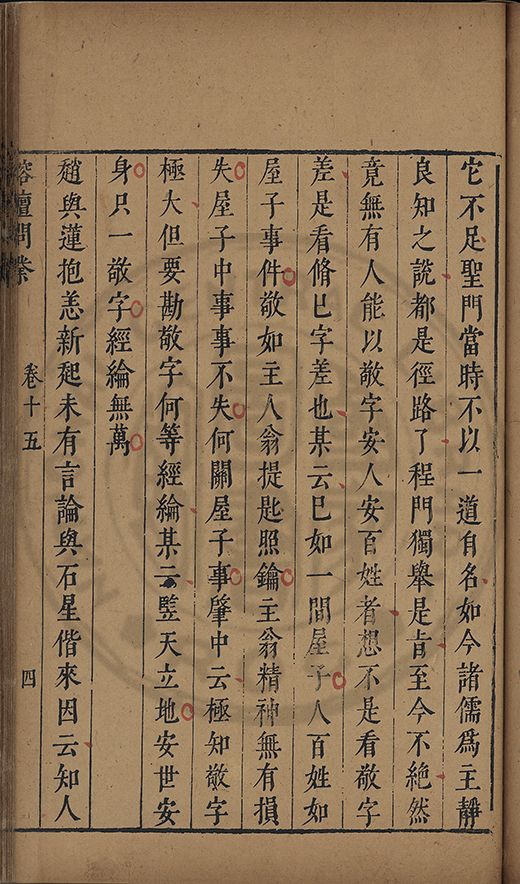 它不足聖門當時不以一道自名如今諸儒爲主靜
良知之說都是徑路了程門獨舉是旨至今不絶然
竟無有人能以敬字安人安百姓者想不是看敬字
差是看脩巳字差也某云巳如一間屋子人百姓如
屋子事件敬如主人翁提匙照鑰主翁精神無有損
失屋子中事事不失何關屋子事肇中云極知敬字
極大但要勘敬字何等經綸某云豎天立地安世安
身只一敬字經綸無萬
趙與蓮抱恙新起未有言論與石星偕來因云知人
榕壇問業
卷十五
四